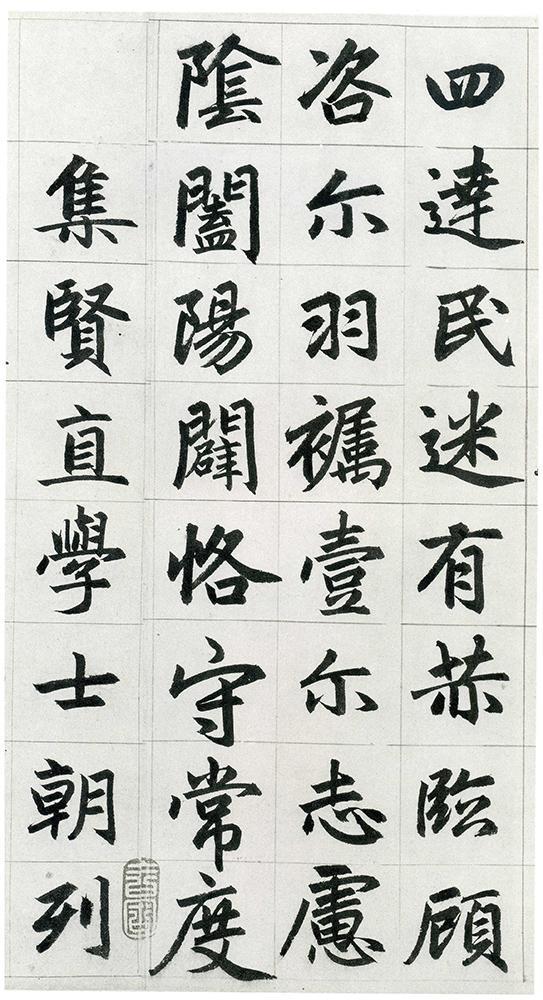 四達民迷有赫臨顧
咨尔羽襹壹尔志慮
陰闔陽闢恪守常度
集賢直學士朝列